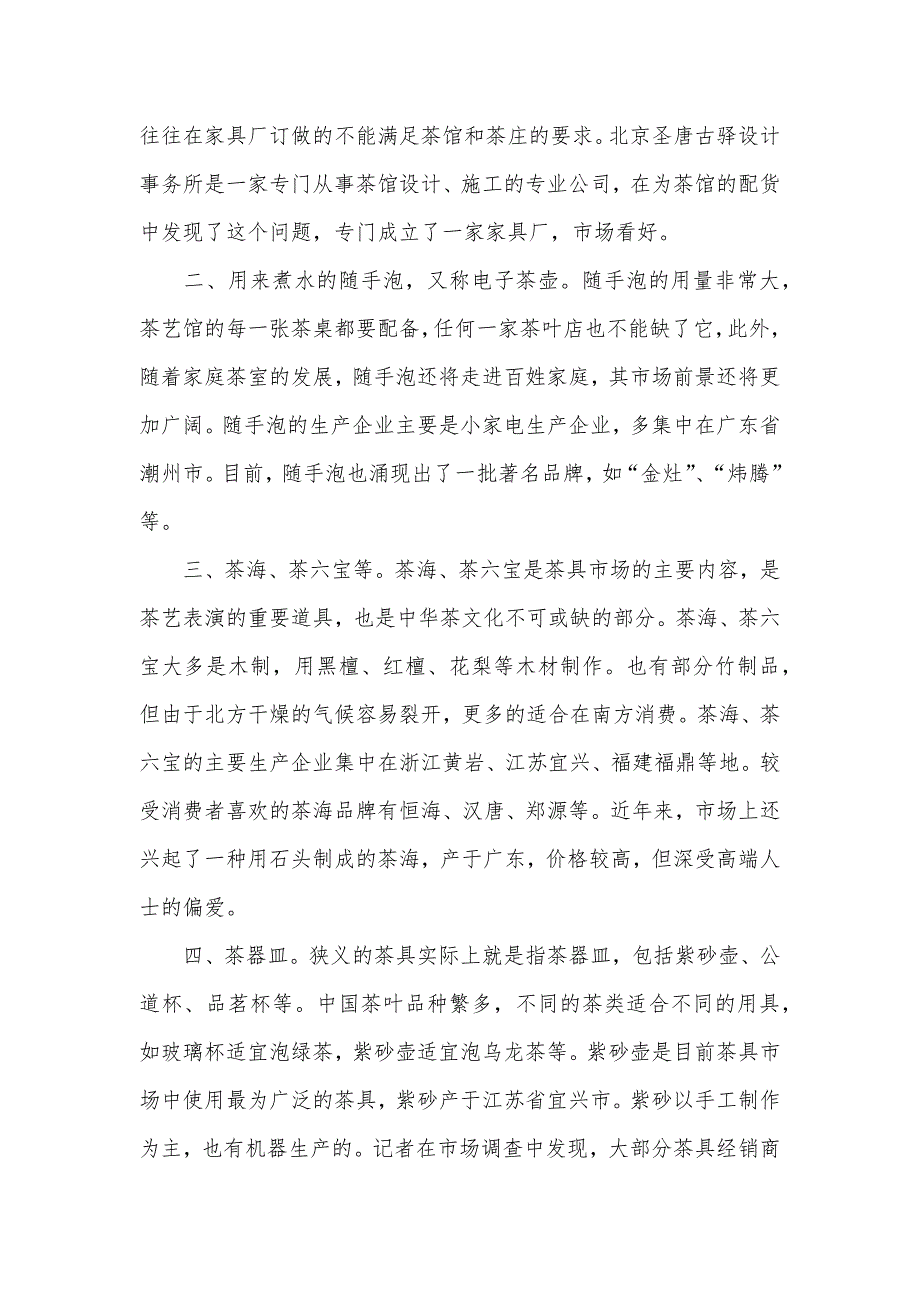 往往在家具厂订做的不能满足茶馆和茶庄的要求。北京圣唐古驿设计
事务所是一家专门从事茶馆设计、施工的专业公司，在为茶馆的配货
中发现了这个问题，专门成立了一家家具厂，市场看好。
二、用来煮水的随手泡，又称电子茶壶。随手泡的用量非常大，
茶艺馆的每一张茶桌都要配备，任何一家茶叶店也不能缺了它，此外，
随着家庭茶室的发展，随手泡还将走进百姓家庭，其市场前景还将更
加广阔。随手泡的生产企业主要是小家电生产企业，多集中在广东省
潮州市。目前，随手泡也涌现出了一批著名品牌，如“金灶”、“炜腾”
等。
三、茶海、茶六宝等。茶海、茶六宝是茶具市场的主要内容，是
茶艺表演的重要道具，也是中华茶文化不可或缺的部分。茶海、茶六
宝大多是木制，用黑檀、红檀、花梨等木材制作。也有部分竹制品，
但由于北方干燥的气候容易裂开，更多的适合在南方消费。茶海、茶
六宝的主要生产企业集中在浙江黄岩、江苏宜兴、福建福鼎等地。较
受消费者喜欢的茶海品牌有恒海、汉唐、郑源等。近年来，市场上还
兴起了一种用石头制成的茶海，产于广东，价格较高，但深受高端人
士的偏爱。
四、茶器皿。狭义的茶具实际上就是指茶器皿，包括紫砂壶、公
道杯、品茗杯等。中国茶叶品种繁多，不同的茶类适合不同的用具，
如玻璃杯适宜泡绿茶，紫砂壶适宜泡乌龙茶等。紫砂壶是目前茶具市
场中使用最为广泛的茶具，紫砂产于江苏省宜兴市。紫砂以手工制作
为主，也有机器生产的。记者在市场调查中发现，大部分茶具经销商